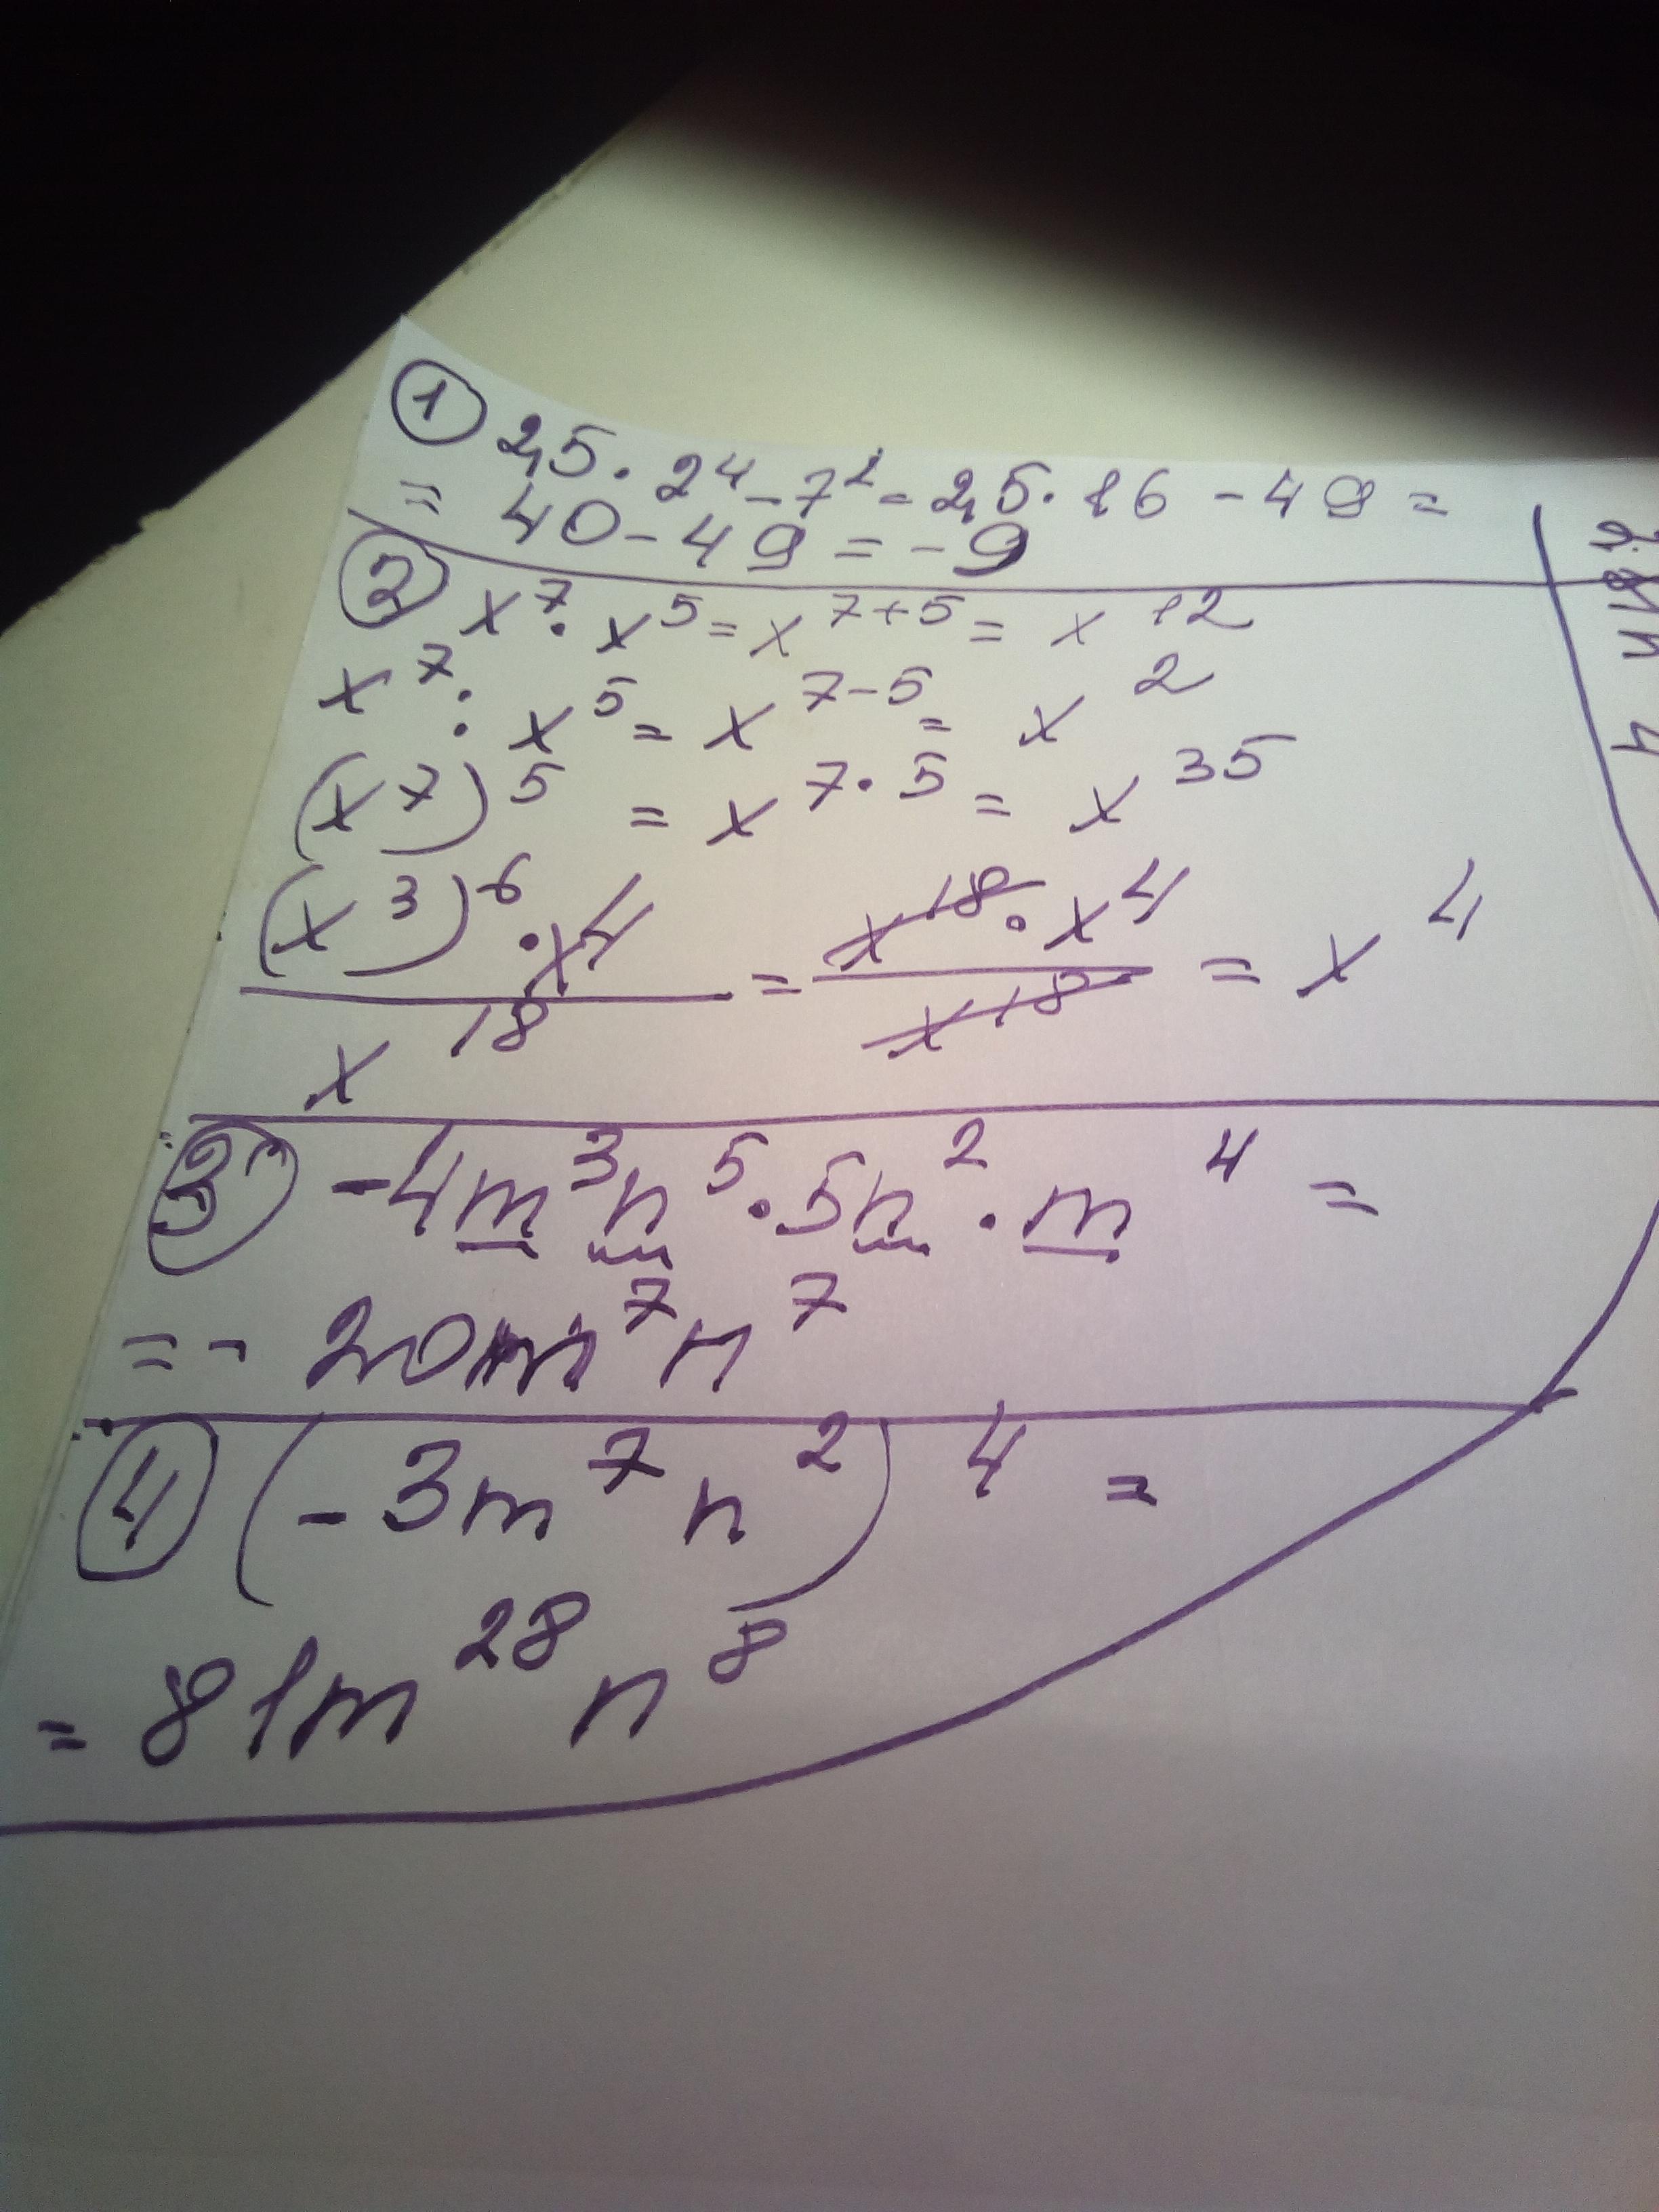 ① 2,5 · 2⁴ - 7² = 2,5 · 16 - 49 =
= 40 - 49 = -9
② x⁷ · x⁵ = x⁷⁺⁵ = x¹²
x⁷ : x⁵ = x⁷⁻⁵ = x²
(x⁷)⁵ = x^(7·5) = x³⁵
((x³)⁶ · x⁴)/x¹⁸ = (x¹⁸ · x⁴)/x¹⁸ = x⁴
③ -4m³n⁵ · 5n² · m⁴ =
= -20m⁷n⁷
④ (-3m⁷n²)⁴ =
= 81m²⁸n⁸